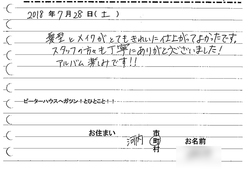 2018年7月28日(土)
髪型とメイクがとてもきれいに仕上がってよかったです。
スタッフの方々も丁寧にありがとうございました!
アルバム楽しみです!!
ピーターハウスへガツン!とひとこと!!
お住まい
河内
市
町
村
お名前